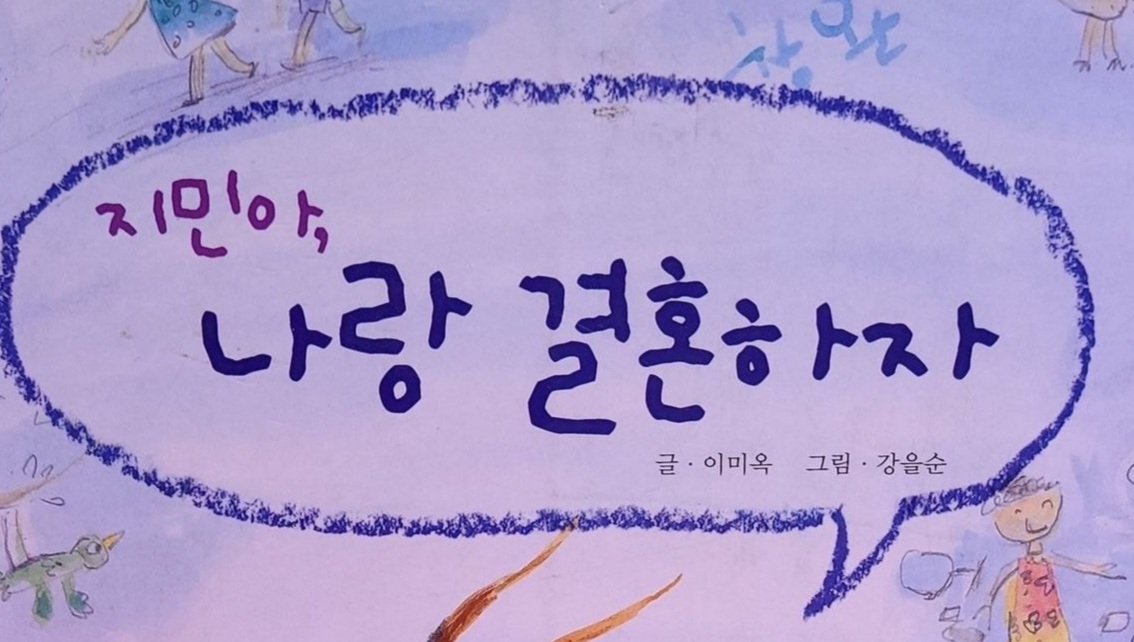 지민아,
나랑 결혼하자
글 · 이미옥 그림 · 강을순